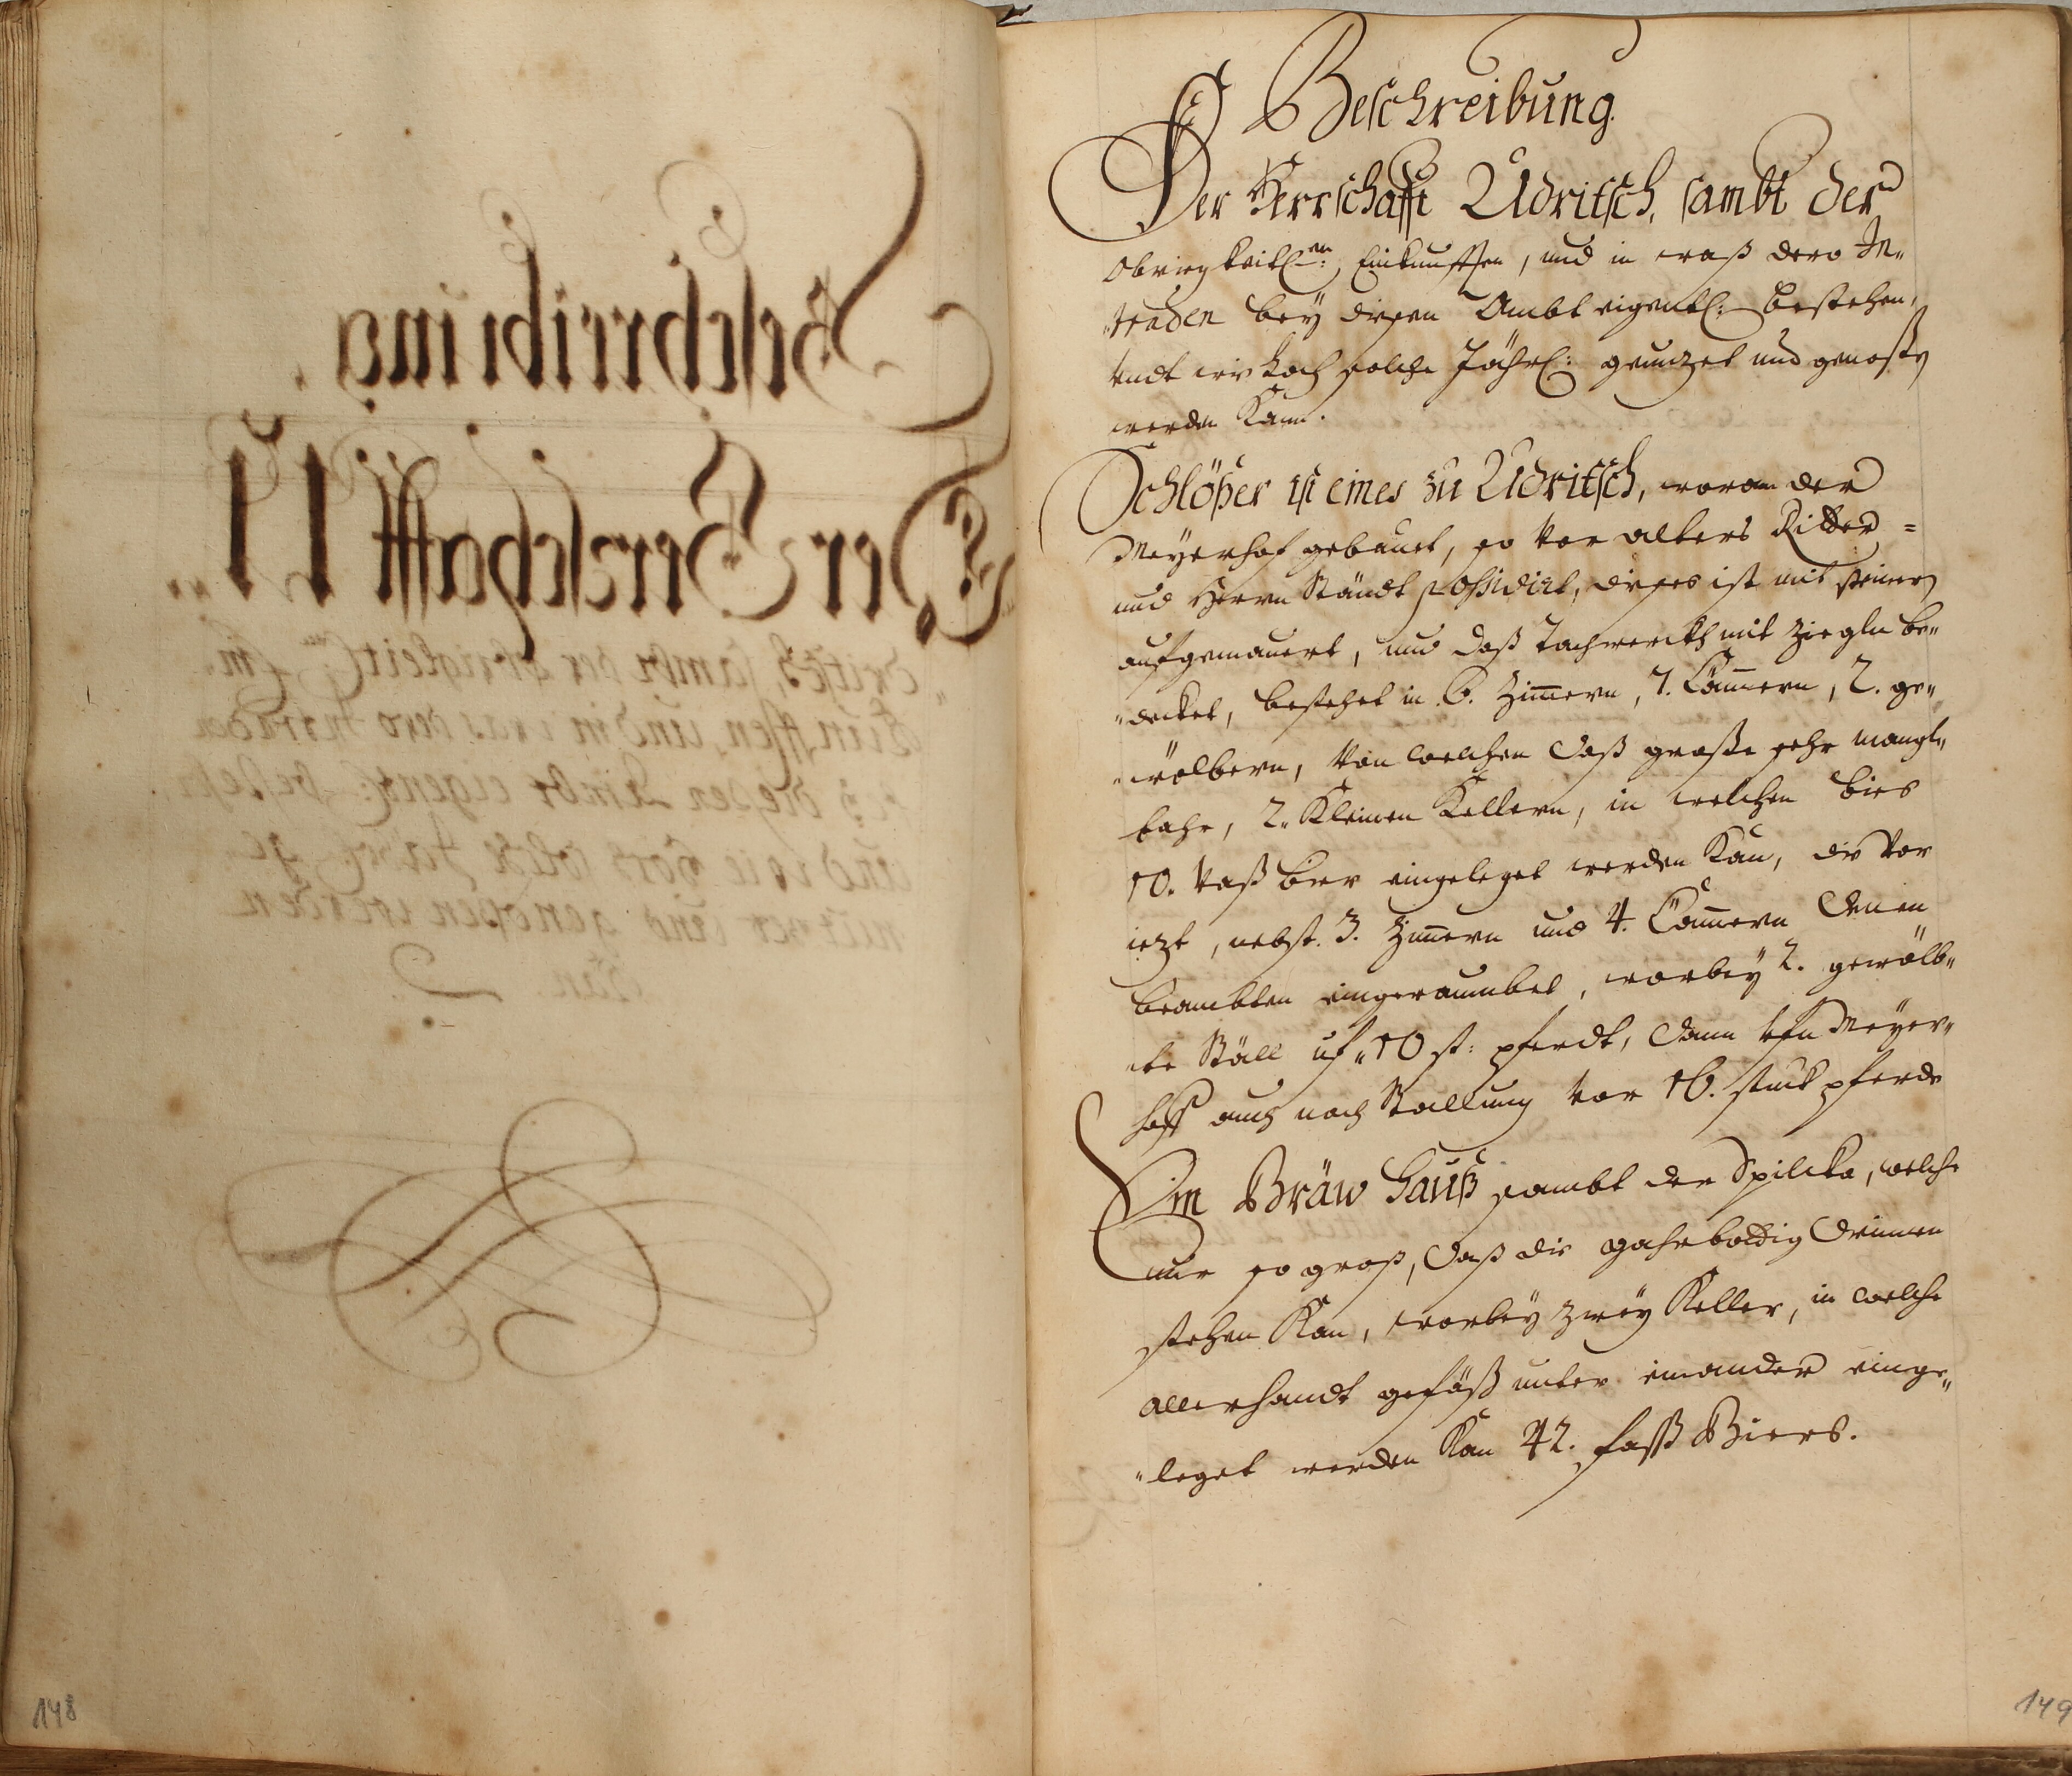 Beschreibung.
Der Herrschafft Udritsch, sambt der
Obrigkeitl:en Einkunfften, und in waß dero In„
„traden bey diesen Ambt eigentl: bestehen,
undt wie hoch solche Jährl: genuzet und genossen
werden kann.
Schlößer ist eines zu Udritsch, woran der
Meyerhof gebauet, so vor alters Ritter=
und Herrn Ständt possidirt, dieses ist mit steinern
aufgemauert, und daß Tachwerckh mit Ziegln be„
„decket, bestehet in 6. Zimmern, 7. Cammern, 2. ge„
„wölbern, von welchen daß grosse sehr mangl„
bahr, 2. kleinen Kellern, in welchen bies
10. vaß bier eingeleget werden kan, die vor
iezt, nebst 3. Zimmern und 4. Cammern denen
beambten eingeraumbet, worbey 2. gewölb„
„te Ställ uf 10 st: pferdt, dann ufn Meyer„
hoff auch noch Stallung vor 16. stuck pferde
Ein Bräw Hauß sambt der Spilcka, welche
nur so groß, daß die drinnen
stehen kan, worbey zwey Keller, in welche
allerhandt gefäß unter einander einge„
„leget werden kan 42. fass Biers.
148
149